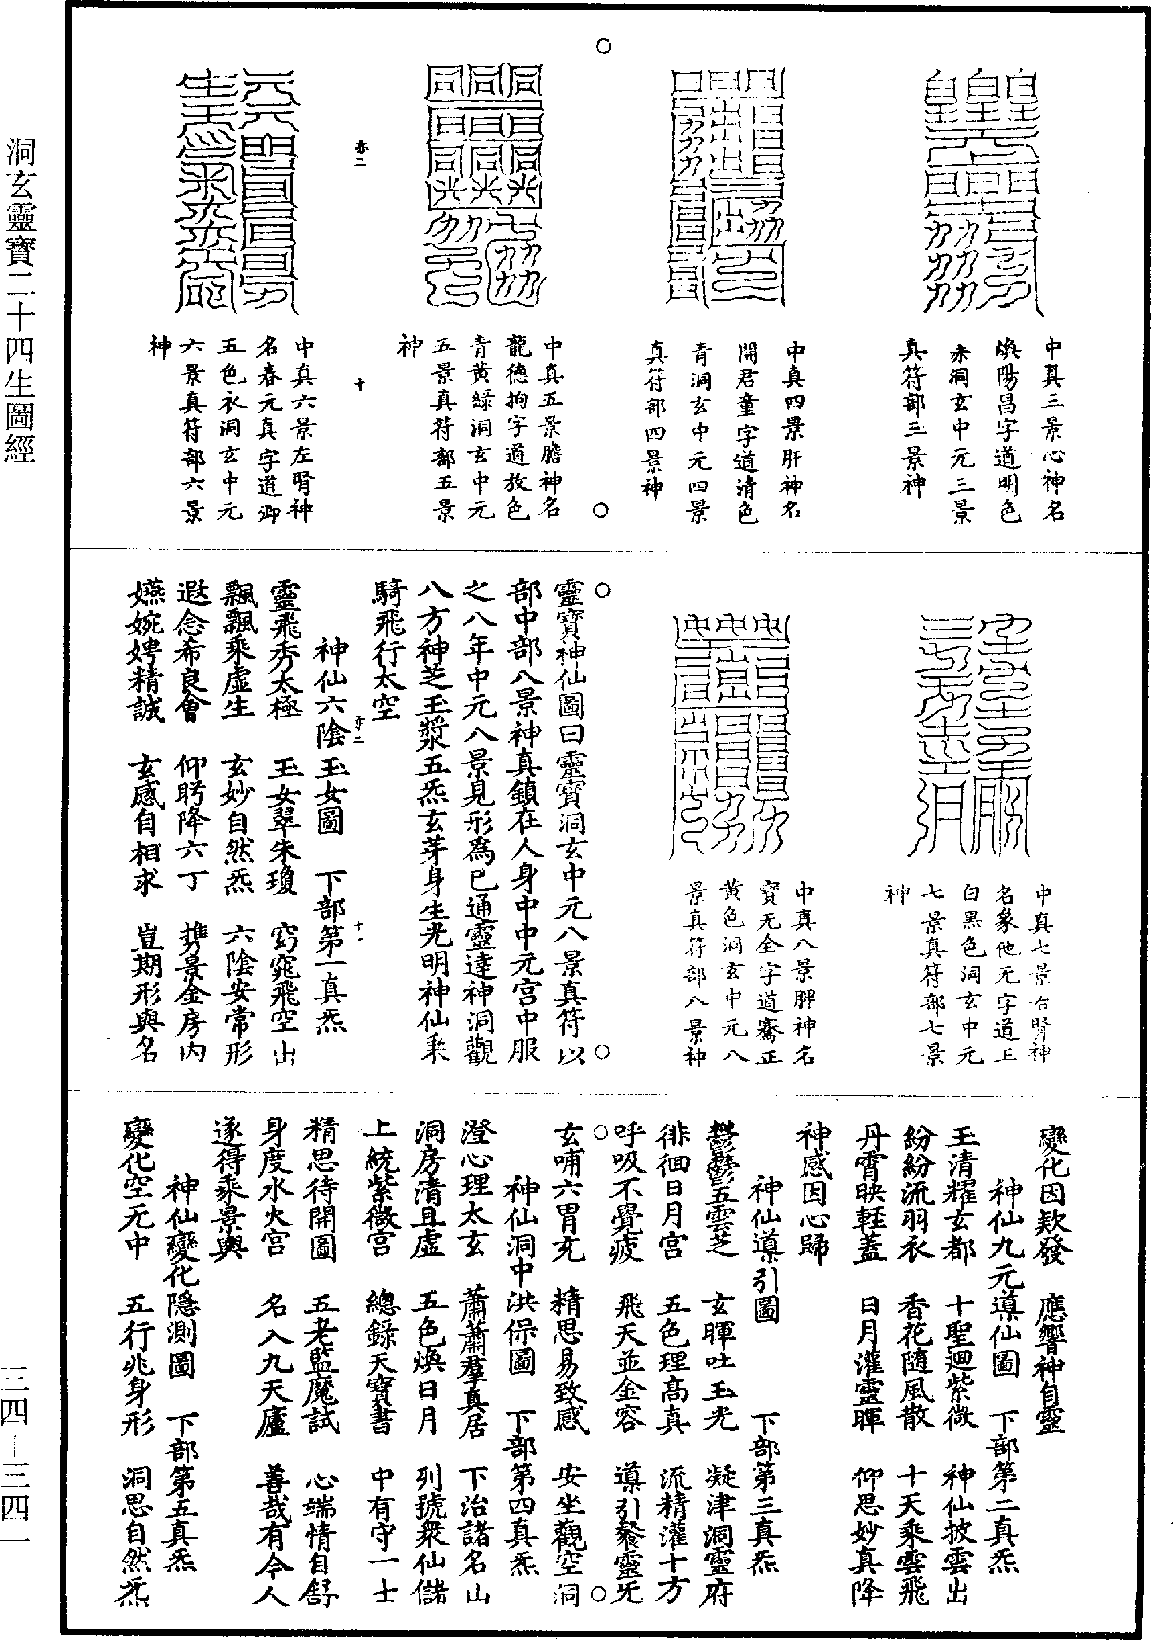 洞玄靈寶二十四生圖經
三四—三四一
中真三景心神名
煥陽昌字道明色
赤洞玄中元三景
真符部三景神
中真四景肝神名
開君童字道清色
青洞玄中元四景
真符部四景神
中真五景膽神名
龍德拘字道放色
青黃綠洞玄中元
五景真符部五景
神
赤二
十
中真六景左腎神
名春元真字道卿
五色衣洞玄中元
六景真符部六景
神
中真七景右腎神
名象他无字道王
白黑色洞玄中元
七景真符部七景
神
中真八景脾神名
寶无全字道騫正
黃色洞玄中元八
景真符部八景神
靈寶神仙圖曰靈寶洞玄中元八景真符以
部中部八景神真鎮在人身中中元宮中服
之八年中元八景見形爲已通靈達神洞觀
八方神芝玉漿五炁玄芽身生光明神仙乘
騎飛行太空
赤二
十一
神仙六陰玉女圖 下部第一真炁
靈飛秀太極 玉女翠朱瓊 窈窕飛空出
飄飄乘虛生 玄妙自然炁 六陰安常形
遐念希良會 仰盻降六丁 携景金房內
嬿婉娉精誠 玄感自相求 豈期形與名
變化因欻發 應響神自靈
神仙九元導仙圖 下部第二真炁
玉清耀玄都 十聖迴紫微 神仙披雲出
紛紛流羽衣 香花隨風散 十天乘雲飛
丹霄映輕蓋 日月灌靈暉 仰思妙真降
神感因心歸
神仙導引圖 下部第三真炁
鬱鬱五雲芝 玄暉吐玉光 凝津洞靈府
徘徊日月宮 五色理高真 流精灌十方
呼吸不覺疲 飛天並金容 導引餐靈炁
玄哺六胃充 精思易致感 安坐觀空洞
神仙洞中洪保圖 下部第四真炁
澄心理太玄 蕭蕭羣真居 下治諸名山
洞房清且虛 五色煥日月 列號衆仙儲
上統紫微宮 總錄天寶書 中有守一士
精思待開圖 五老監魔試 心端情自舒
身度水火宮 名入九天廬 善哉有今人
遂得乘景輿
神仙變化隱測圖 下部第五真炁
變化空无中 五行兆身形 洞思自然炁